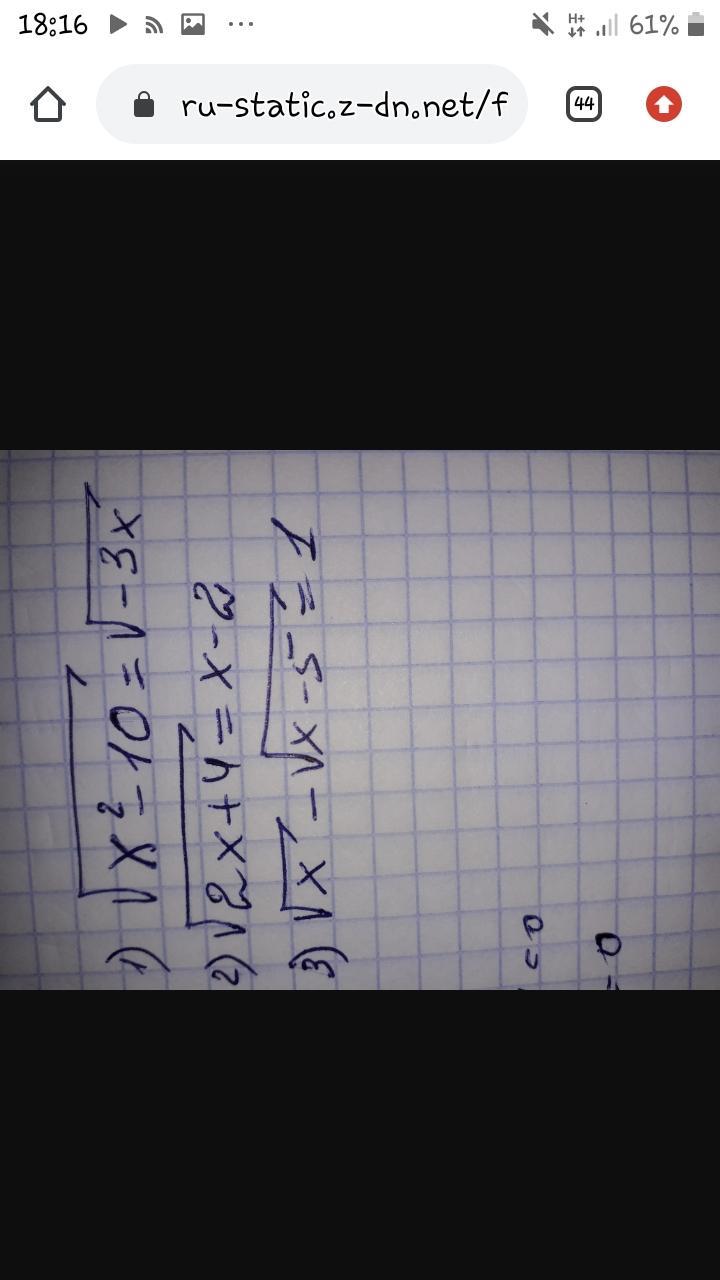 18:16 61%
ru-static.z-dn.net/f
44
1) √x²-10 = √-3x
2) √2x+4 = x-2
3) √x - √x-5 = 1
= 0
= 0